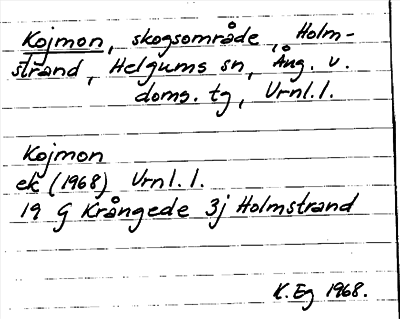 Kojmon, skogsområde, Holm-
strand, Helgums sn, Ång. v.
doms. tg, Vrnl.l.
Kojmon
ek (1968) Vrnl.l.
19 G Krångede 3j Holmstrand
K. Eg 1968.